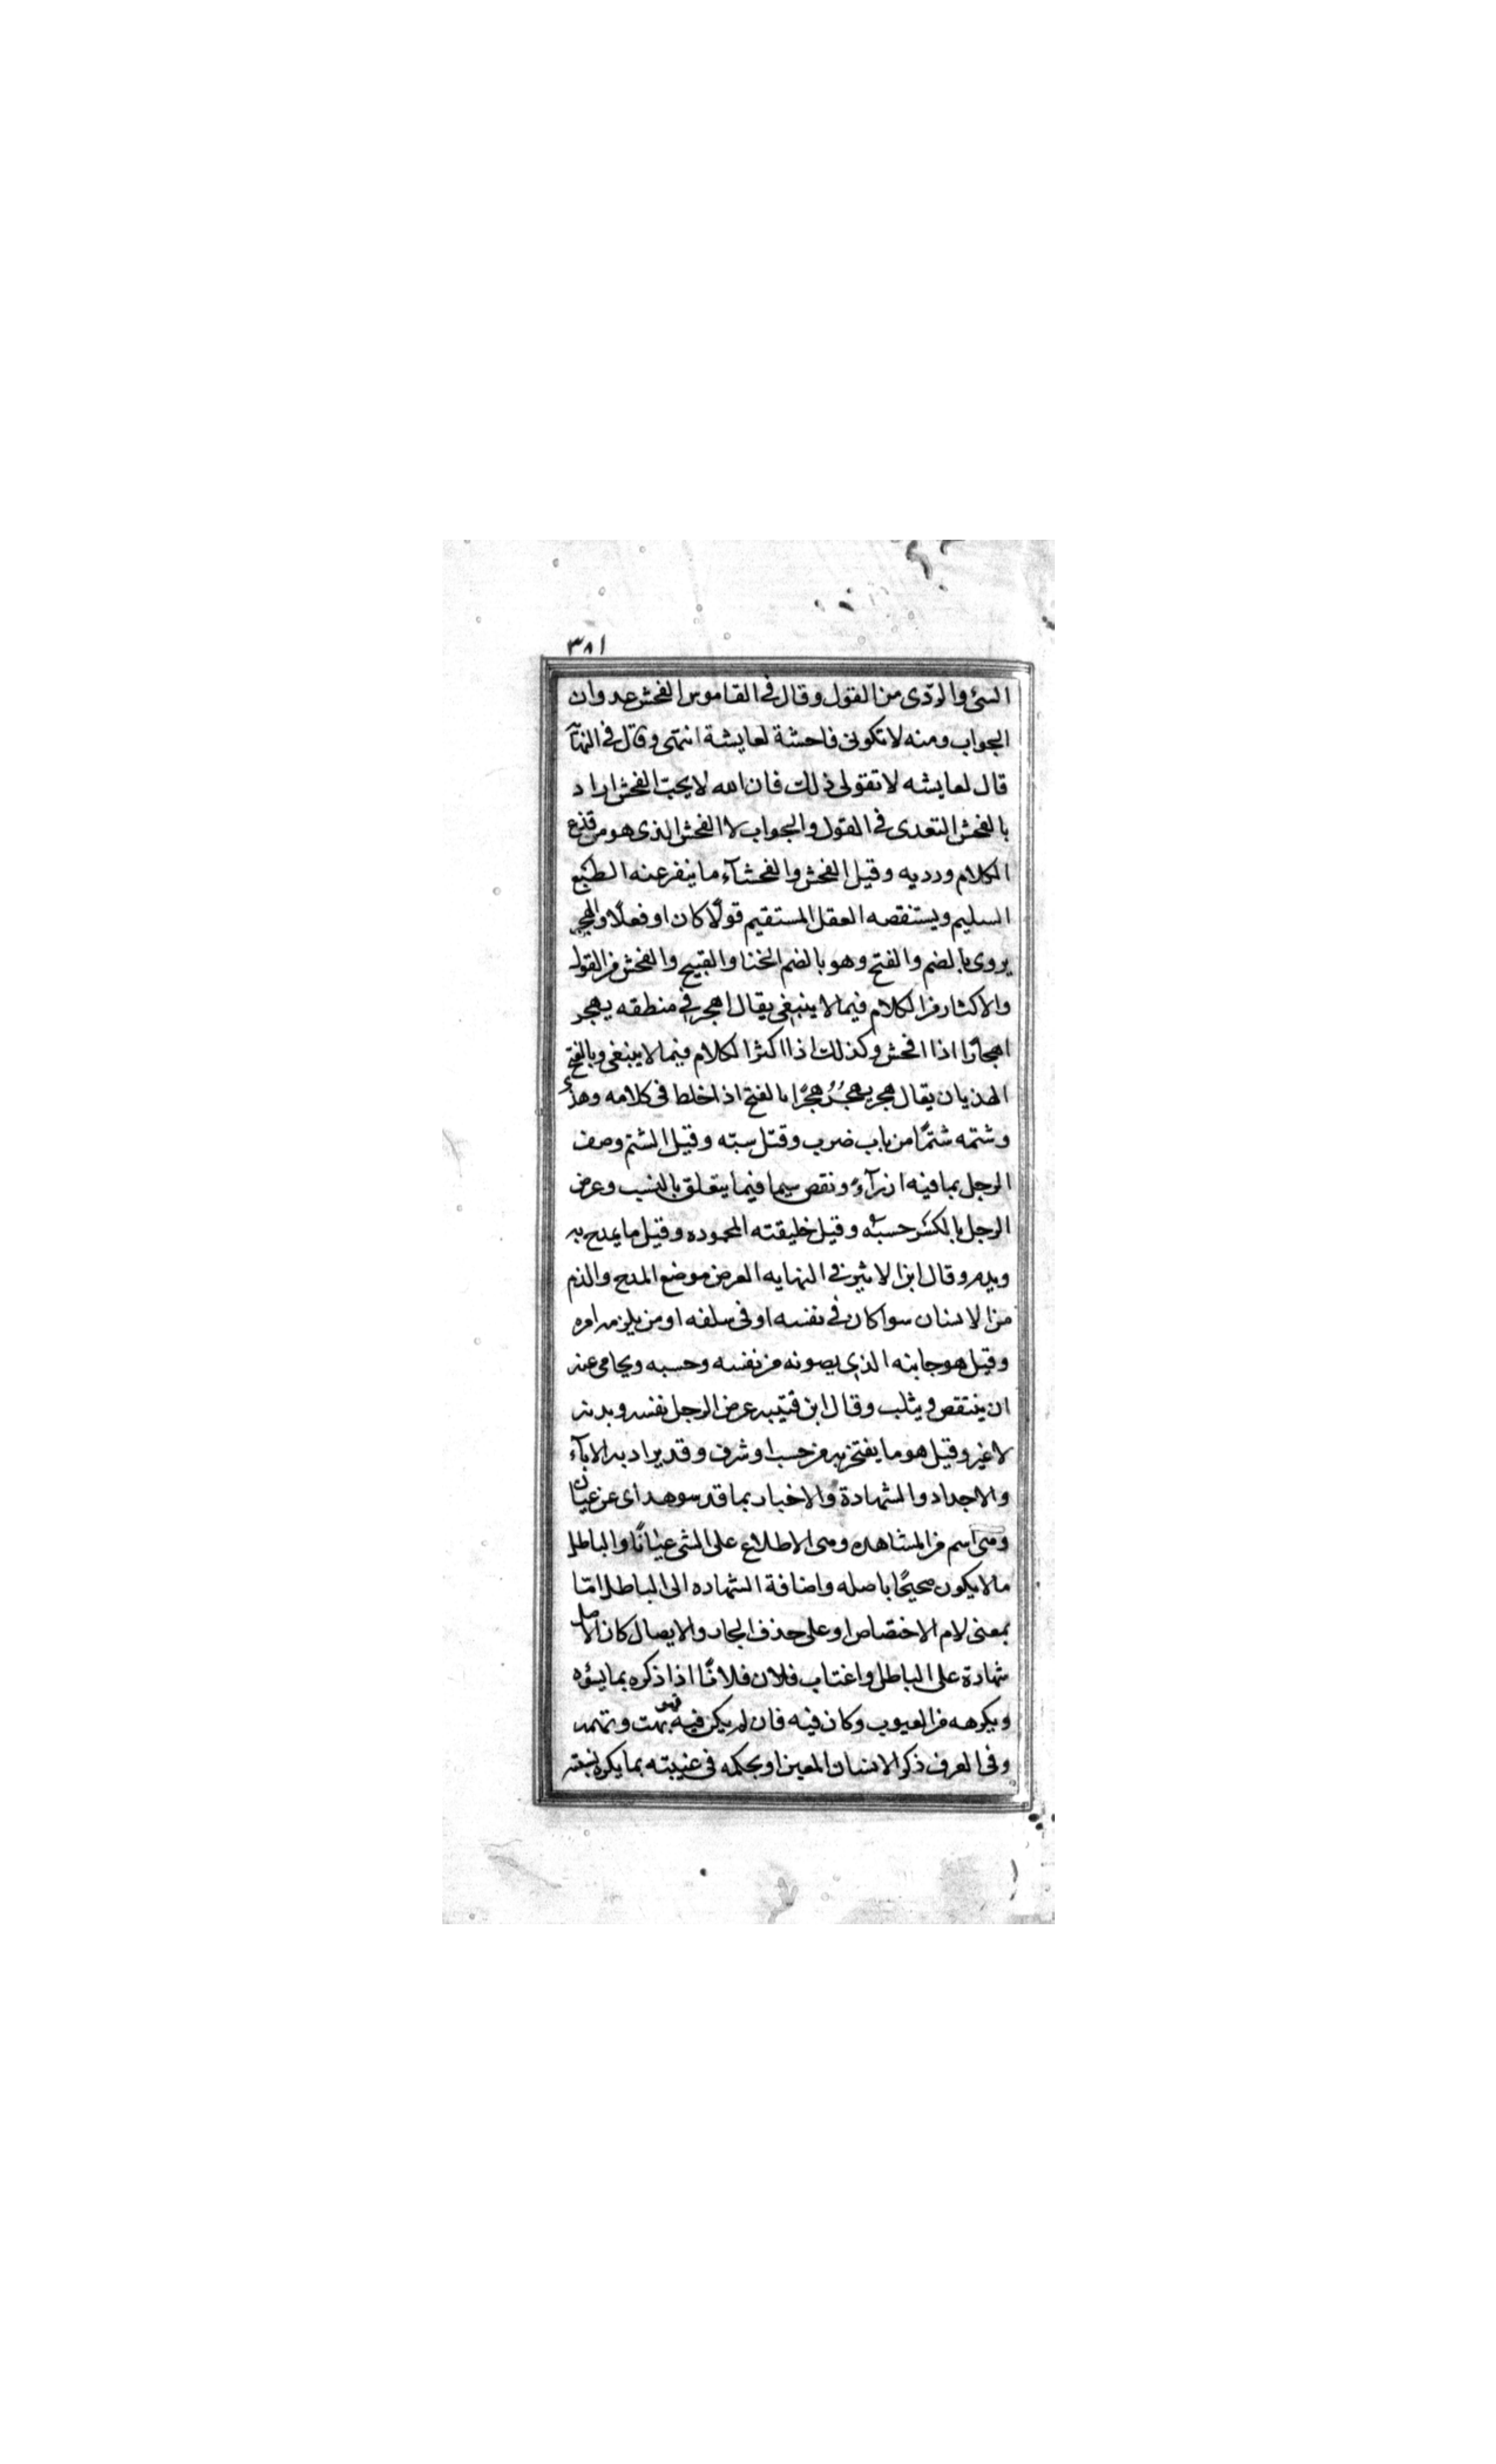 ٣٨١
السئ والردى من القول وقال فى القاموس الفحش عدوان
الجواب ومنه لا تكونى فاحشة لعايشة انتهى وقال فى النهاية
قال لعايشه لا تقولى ذلك فان الله لا يحب الفحش اراد
بالفحش التعدى فى القول والجواب لا الفحش الذى هو من قذع
الكلام ورديه وقيل الفحش والفحشآء ما ينفر عنه الطبع
السليم ويستنقصه العقل المستقيم قولًا كان او فعلًا والهجر
يروى بالضم والفتح وهو بالضم الخنا والقبيح والفحش من القول
والاكثار من الكلام فيما لا ينبغى يقال اهجر فى منطقه يهجر
اهجارًا اذا افحش وكذلك اذا اكثر الكلام فيما لا ينبغى وبالفتح
الهذيان يقال هجر يهجُرُ هجرًا بالفتح اذا خلط فى كلامه وهذى
وشتمه شتمًا من باب ضرب وقتل سبّه وقيل الشتم وصف
الرجل بما فيه ازرآءٌ ونقص سيما فيما يتعلق بالنسب وعرض
الرجل بالكسر حسبه وقيل خليقته المحموده وقيل ما يمدح به
ويذم وقال ابن الاثير فى النهايه العرض موضع المدح والذم
من الانسان سوا كان فى نفسه او فى سلفه او من يلزمه امره
وقيل هو جانبه الذى يصونه من نفسه وحسبه ويحامى عنه
ان ينتقص ويثلب وقال ابن قتيبه عرض الرجل نفسه وبدنه
لا غير وقيل هو ما يفتخر به من حسب او شرف وقد يراد به الابآء
والاجداد والشهادة والاخبار بما قد سوهد اى عن عيان
وهى اسم من المشاهده وهى الاطلاع على الشى عيانًا والباطل
ما لا يكون صحيحًا باصله واضافة الشهاده الى الباطل امّا
بمعنى لام الاختصاص او على حذف الجار والايصال كان الاصل
شهادة على الباطل واغتاب فلان فلانًا اذا ذكره بما يسؤه
ويكرهه من العيوب وكان فيه فان لم يكن فيه فهو بهت وتهمه
وفى العرف ذكر الانسان المعين او بحكمه فى غيبته بما يكره نسبته